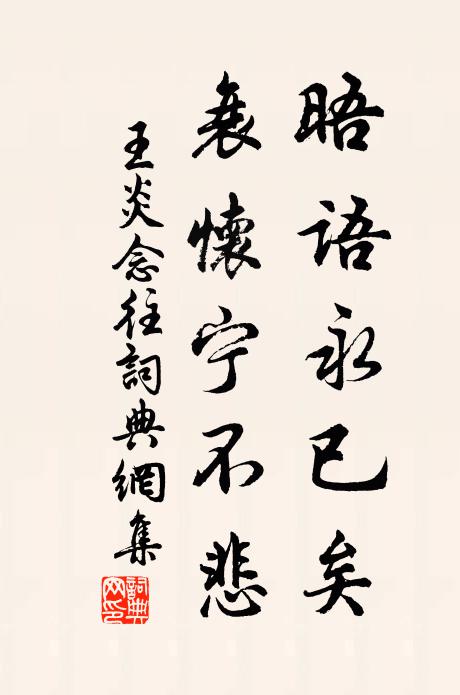 晤语永已矣
衰懷宁不悲
王炎念往詞典網集
詞典网印